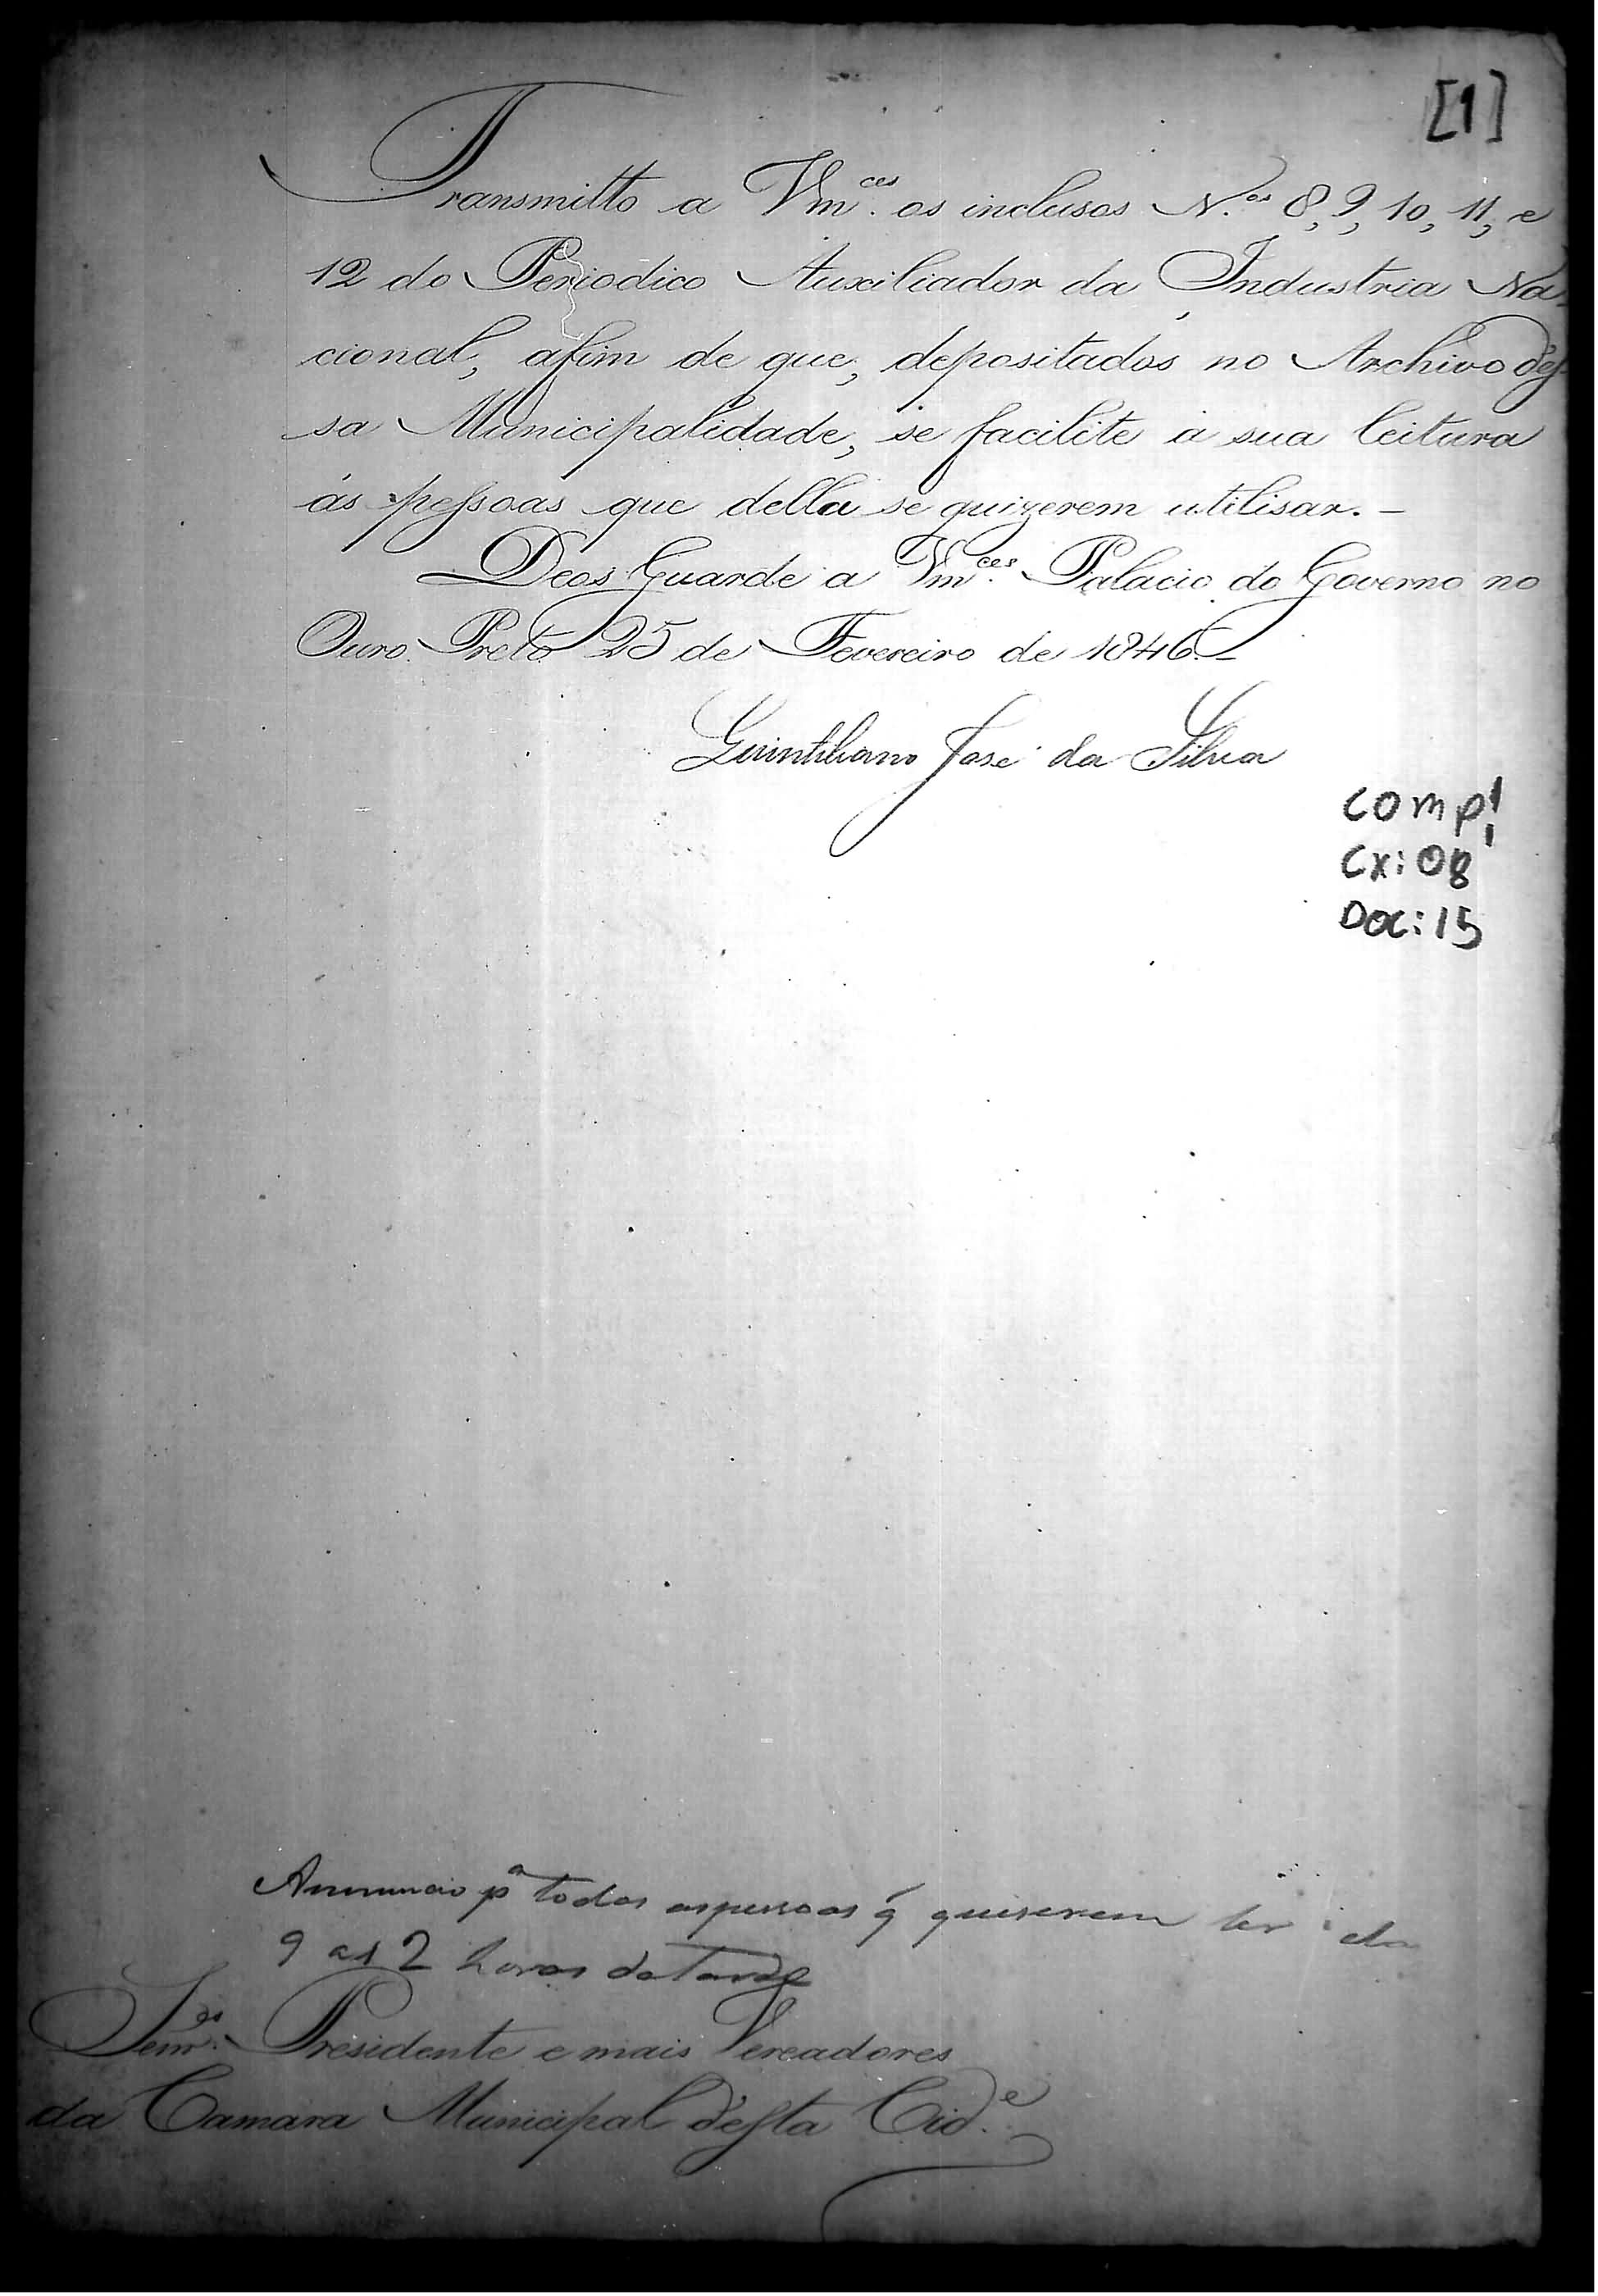 [1]
Transmitto a Vm.ces os inclusos N.os 8, 9, 10, 11, e
12 do Periodico Auxiliador da Industria Na-
cional, afim de que, depositados no Archivo d'es-
sa Municipalidade, se facilite a sua leitura
ás pessoas que della se quizerem utilisar. -
Deos Guarde a Vm.ces Palacio do Governo no
Ouro Preto 25 de Fevereiro de 1846. -
Quintiliano José da Silva
comp!
Cx: 08
Doc: 15
Annuncio pa todas as pessoas q̃ quiserem ler da
9 as 2 horas da tarde
Presidente e mais Vereadores
da Camara Municipal d'esta Cid.e